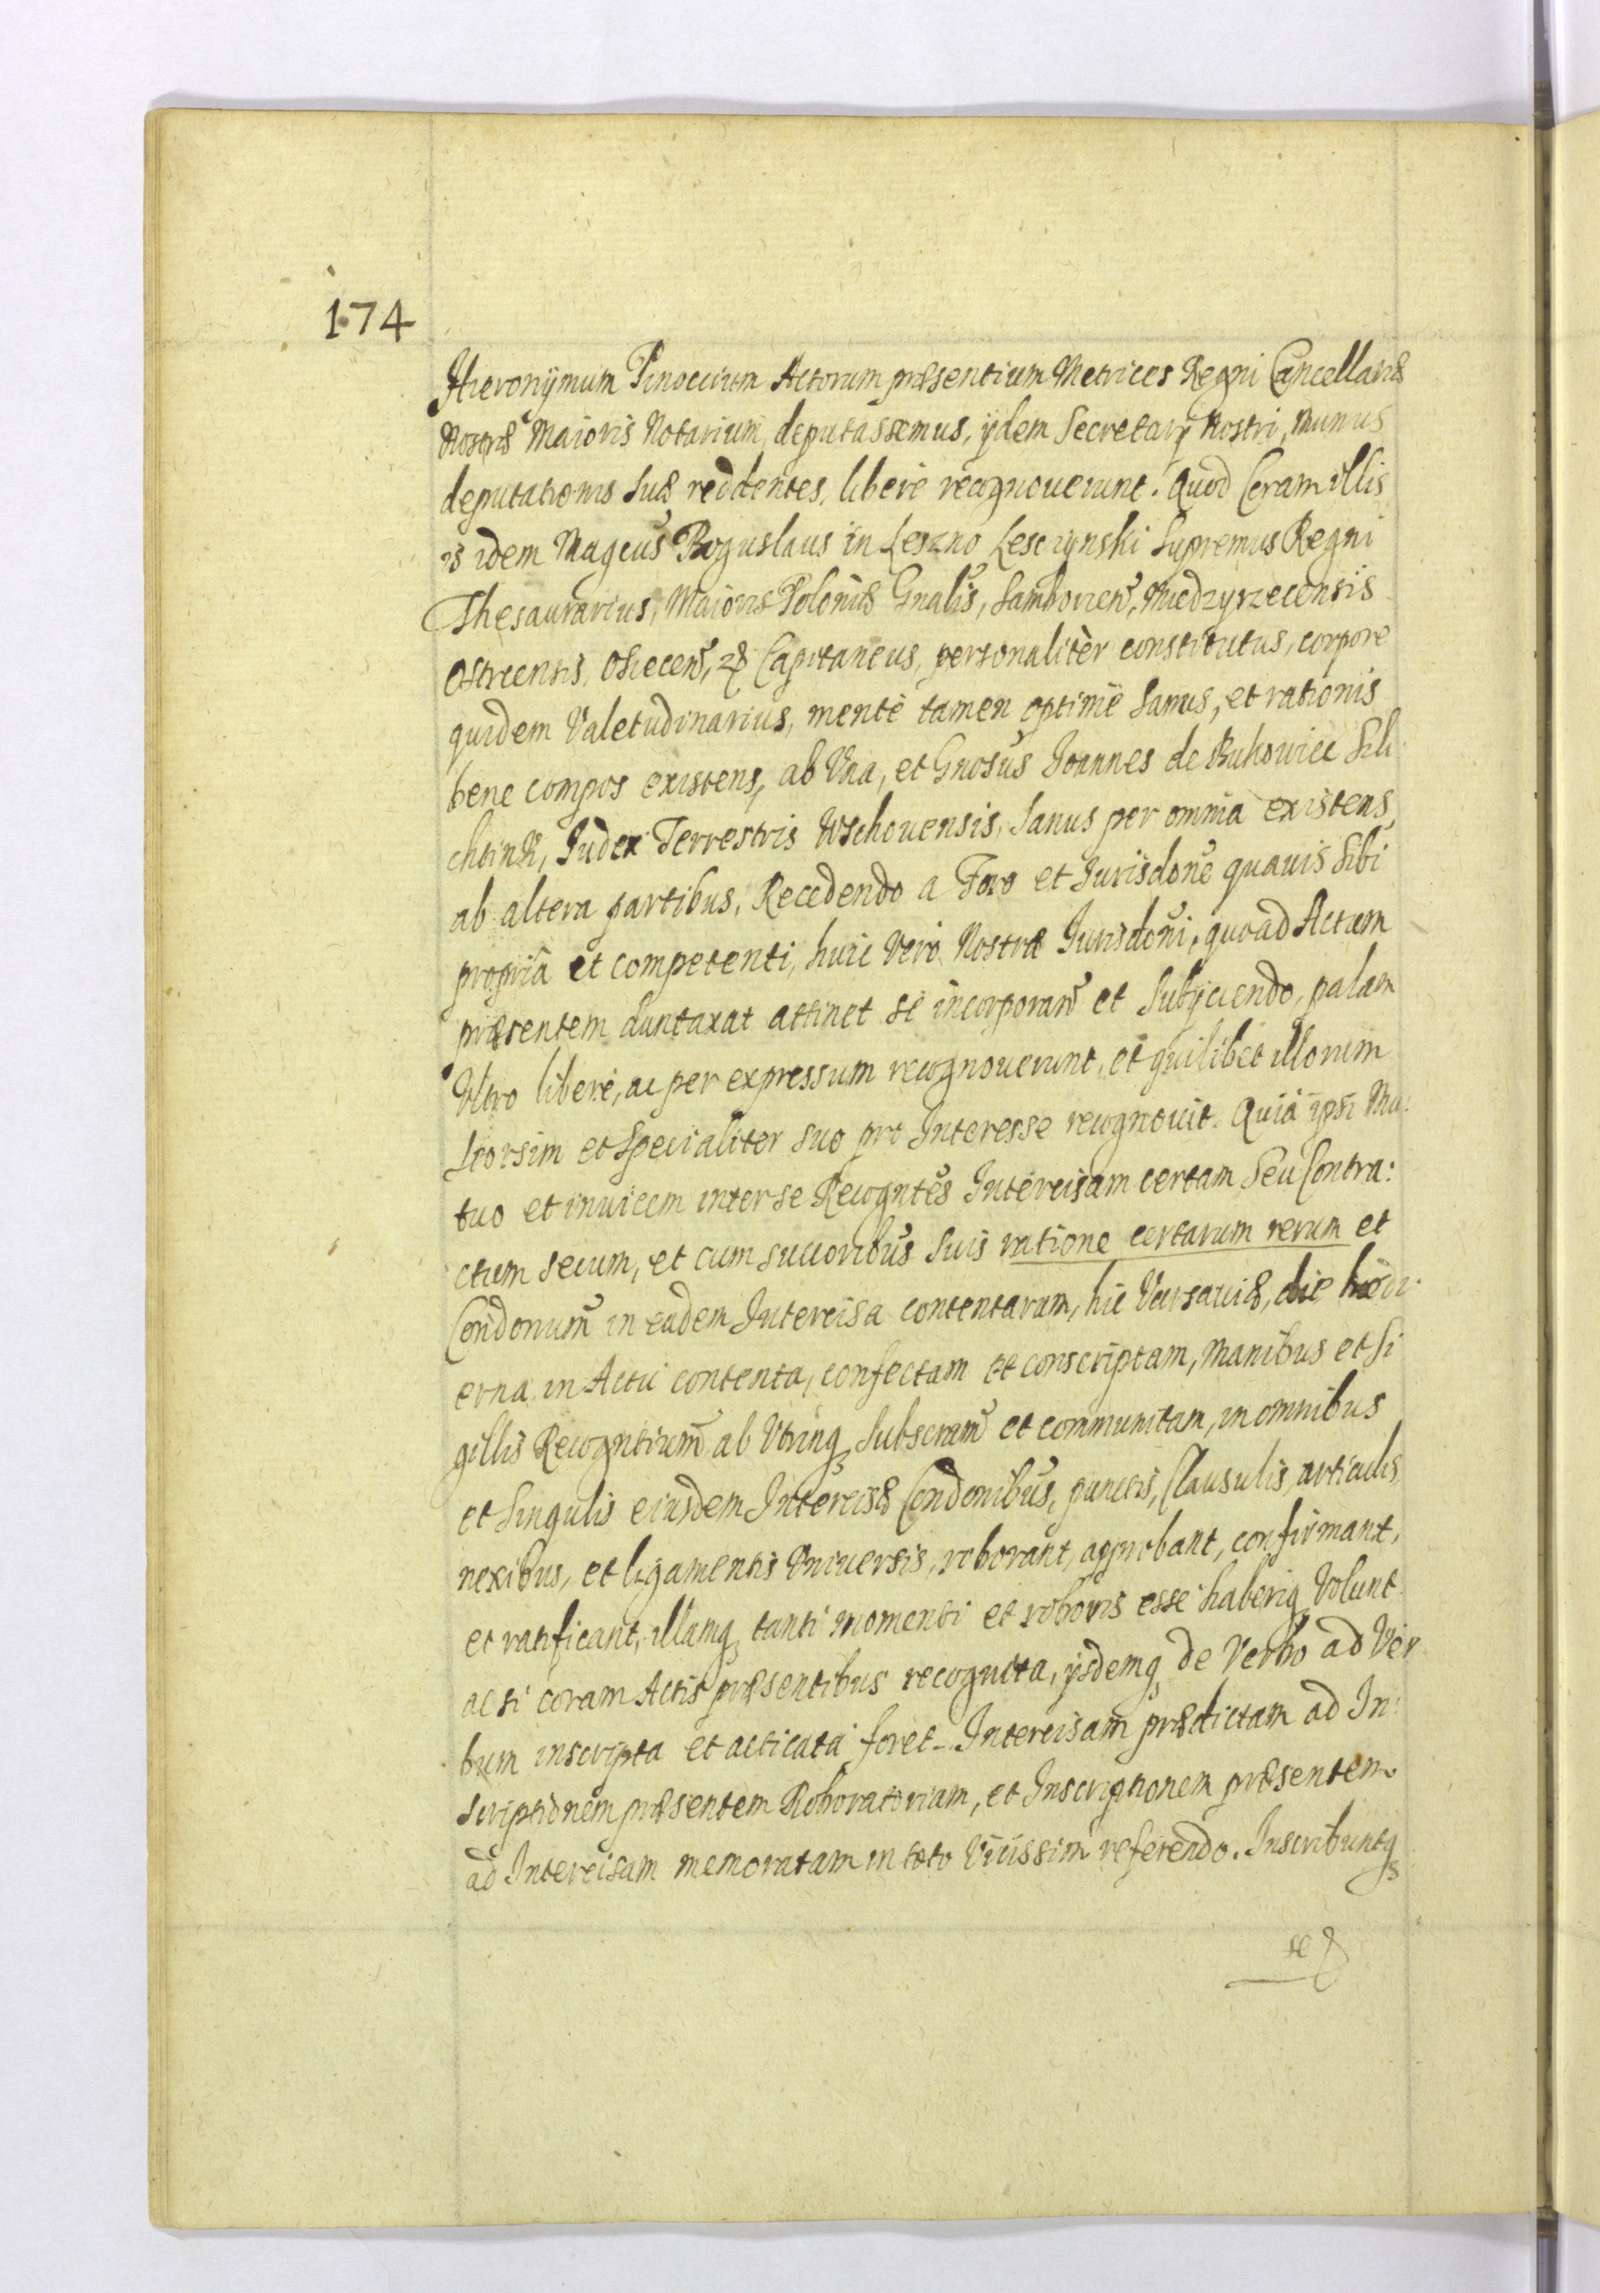 174
Hieronymum Pinoccium Actorum præsentium Metrices Regni Cancellariæ
Nostræ Maioris Notarium, deputassemus, ydem Secretarÿ Nostri, munus
deputationis suæ reddentes, liberè recognouerunt. Quod Coram illis
is idem Magcus Boguslaus in Leszno Lesczynski Supremus Regni
Thesaurarius, Maioris Poloniæ Gnalis, Samborien, Miedzyrzecensis
Ostrcensis, Osiecen, &c Capitaneus, personalitèr constitutus, corpore
quidem Valetudinarius, mente tamen optimè sanus, et rationis
bene compos existens, ab Vna, et Gnosus Joannes de Bukowiec Sch
chtink, Judex Terrestris Wschouensis, sanus per omnia existens,
ab altera partibus, Recedendo a Foro et Jurisdone quauis sibi
propria et competenti, huic vero Nostræ Jurisdoni, quoad Actum
præsentem duntaxat attinet se incorporan et subÿciendo, palam
Vltro liberè, ac per expressum recognouerunt, et quilibet illorum
seorsim et specialiter suo pro Interesse recognouit. Quia ipsi Mu:
tuo et inuicem inter se Recogntes Intercisam certam seu Contra:
ctum secum, et cum succoribus suis ratione certarum rerum et
Condonum in eadem Intercisa contentarum, hic Varsauiæ, die hodi:
erna in Actu contenta, confectam et conscriptam, manibus et si
gillis Recogntium ab Vtrinq subscram et communitam, in omnibus
et singulis eiusdem Intercisæ Condonibus, punctis, Clausulis, articulis
nexibus, et ligamentis Vniuersis, roborant, approbant, confirmant,
et ratificant, illamq tanti momenti et roboris esse haberiq Volunt
ac si coram Actis præsentibus recognita, ÿsdemq de Verbo ad Ver
bum inscripta et acticata foret. Intercisam prædictam ad In:
scriptionem præsentem Roboratoriam, et Inscriptionem præsentem
ad Intercisam memoratam in toto Vicissim referendo. Inscribuntq
se